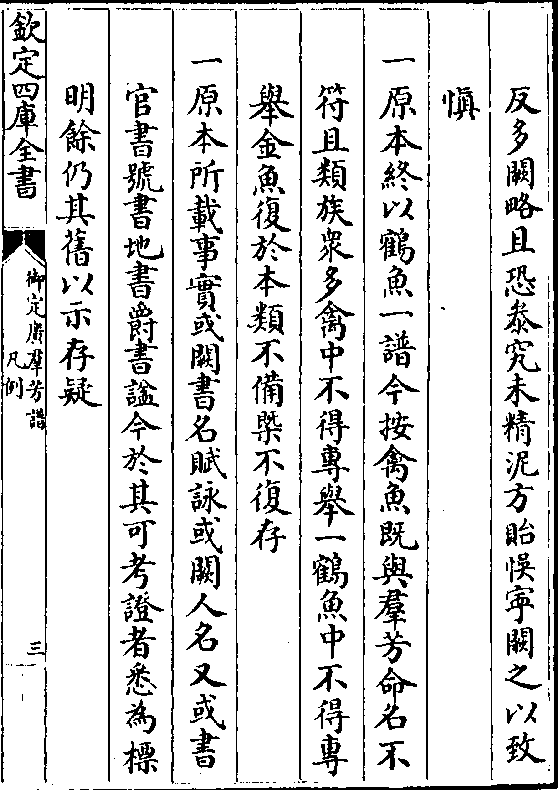 反多闕略且恐叅究未精泥方貽悞寜闕之以致
慎
一原本終以鶴魚一譜今按禽魚既與羣芳命名不
符且類族衆多禽中不得專舉一鶴魚中不得專
舉金魚復於本類不備槩不復存
一原本所載事實或闕書名賦詠或闕人名又或書
官書號書地書爵書諡今於其可考證者悉為標
明餘仍其舊以示存疑
欽定四庫全書
御定廣羣芳譜
凡例
三